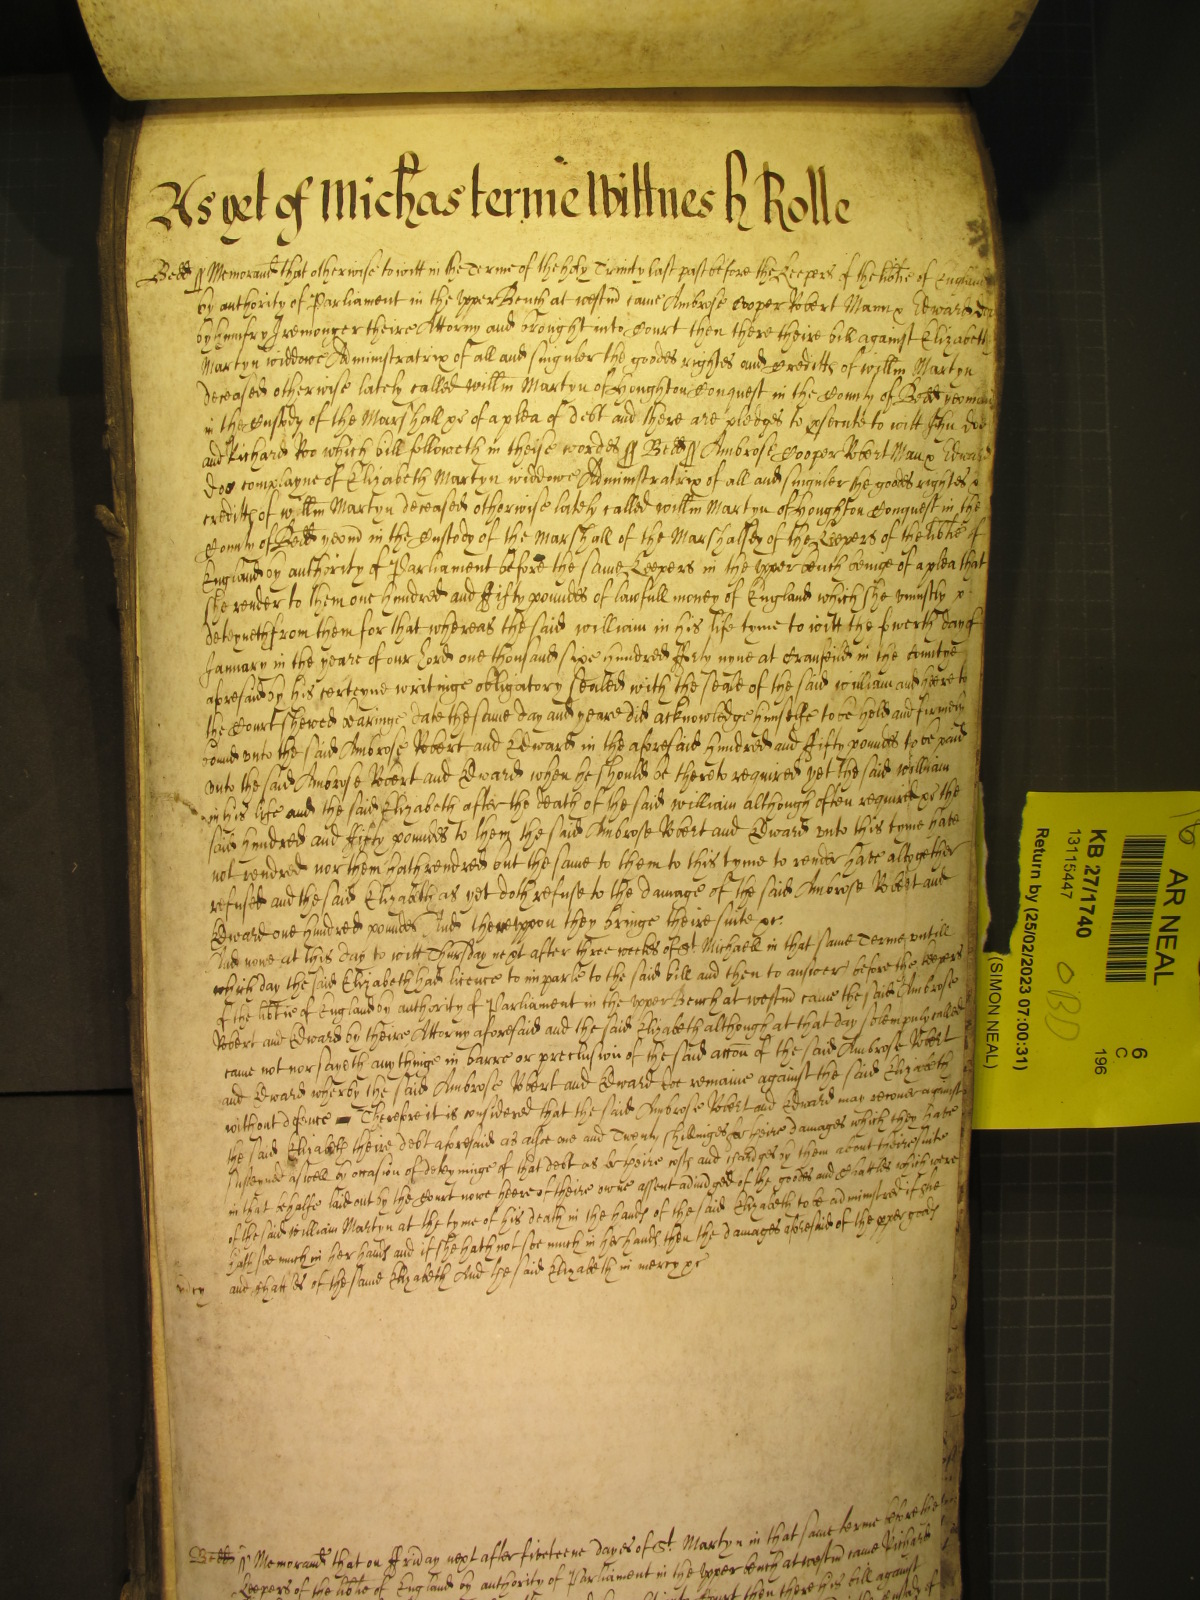 As yet of Michas terme Wittnes h Rolle
Bedd ss Memorand that otherwise to witt in the Terme of the holy Trinity last past before the Keepers of the libtie of England
by authority of Parliament in the Upper Bench at westm came Ambrose Cooper Robert Mann & Edward
by Humfry Iremonger theire Attorny and brought into Court then there theire bill against Elizabeth
Martyn widdowe Administratrix of all and singuler the goodes rightes and creditts of willm Martyn
deceased otherwise lately called willm Martyn of Houghton Conquest in the County of Bedd yeoman
in the Custody of the Marshall &c of a plea of debt and there are pledges to psecute to witt John Doe
and Richard Roo which bill followeth in theise wordes ss Bedd ss Ambrose Cooper Robert Mann & Edward
complayne of Elizabeth Martyn widdowe Administratrix of all and singuler the goodes rightes &
creditts of willm Martyn deceased otherwise lately called willm Martyn of Houghton Conquest in the
County of Bedd yeom in the Custody of the Marshall of the Marshalsey of the Keepers of the libtie of
England by authority of Parliament before the same Keepers in the upper bench beinge of a plea that
she render to them one hundred and ffifty poundes of lawfull money of England which she uniustly &
deteyneth from them for that whereas the said william in his life tyme to witt the day of
January in the yeare of our Lord one thousand sixe hundred fforty nyne at Cranfeild in the County
aforesaid by his certeyne writinge obligatory sealed with the seale of the said william and heere to
the Court shewed bearinge date the same day and yeare did acknowledge himselfe to be held and firmely
bound unto the said Ambrose Robert and Edward in the aforesaid hundred and ffifty poundes to be paid
unto the said Ambrose Robert and Edward when he should be thereto required yet the said william
in his life and the said Elizabeth after the death of the said william although often required &c the
said hundred and ffifty poundes to them the said Ambrose Robert and Edward unto this tyme have
not rendred nor them hath rendred but the same to them to this tyme to render have altogether
refused and the said Elizabeth as yet doth refuse to the damage of the said Ambrose Robert and
Edward one hundred poundes And thereuppon they bringe theire suite &c.
And nowe at this day to witt Thursday next after three weekes of St Michaell in that same Terme untill
which day the said Elizabeth had licence to imparle to the said bill and then to answer before the keepers
of the libtie of England by authority of Parliament in the upper Bench at westm came the said Ambrose
Robert and Edward by theire Attorny aforesaid and the said Elizabeth although at that day solempnly called
came not nor sayeth anythinge in barre or preclusion of the said accon of the said Ambrose Robert
and Edward wherby the said Ambrose Robert and Edward doe remaine against the said Elizabeth
without defence Therefore it is considered that the said Ambrose Robert and Edward may recover against
the said Elizabeth theire debt aforesaid as alsoe one and Twenty shillinges for theire damages which they have
susteyned aswell by occasion of deteyninge of that debt as for theire costs and chardges by them about theire suite
in that behalfe laid out by the Court nowe heere of theire owne assent adiudged of the goodes and chattles which were
of the said william Martyn at the tyme of his death in the hands of the said Elizabeth to be administred if she
hath soe much in her hands and if she hath not soe much in her hands then the damages aforesaid of the pper goods
and chattles of the same Elizabeth And the said Elizabeth in mercy &c
mcy
Bedd ss Memorand that on ffriday next after fiveteene dayes of St Martyn in that same terme before the
keepers of the libtie of England by authority of Parliament in the upper bench at westm came Richard
Court then there his bill against
AR NEAL
KB 27/1740
13115447
Return by (25/02/2023 07:00:31)
(SIMON NEAL)
6
C
196